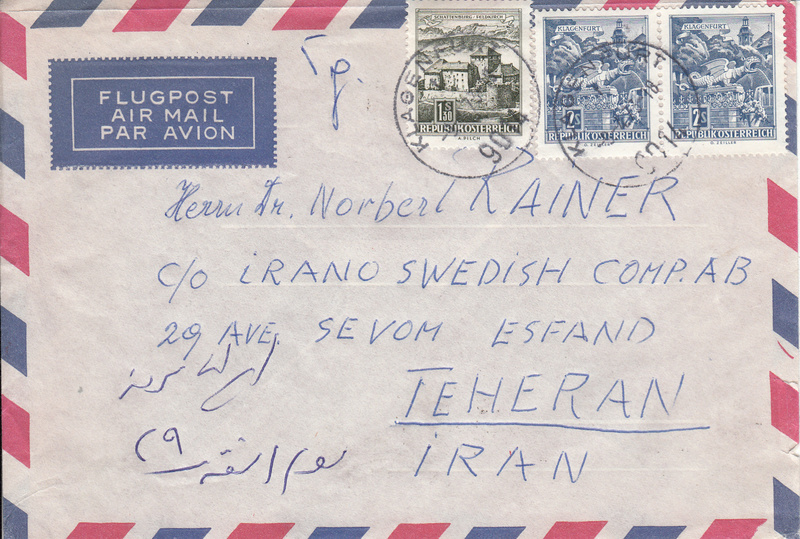 FLUGPOST
AIR MAIL
PAR AVION
SCHATTENBURG - FELDKIRCH
1.50 S
REPUBLIK ÖSTERREICH
A. PILCH
KLAGENFURT
2S
REPUBLIK ÖSTERREICH
KLAGENFURT
2S
REPUBLIK ÖSTERREICH
KLAGENFURT
KLAGENFURT
Herrn Dr. Norbert RAINER
C/O IRANO SWEDISH COMP. AB
29 AVE. SEVOM ESFAND
TEHERAN
IRAN
۲۹